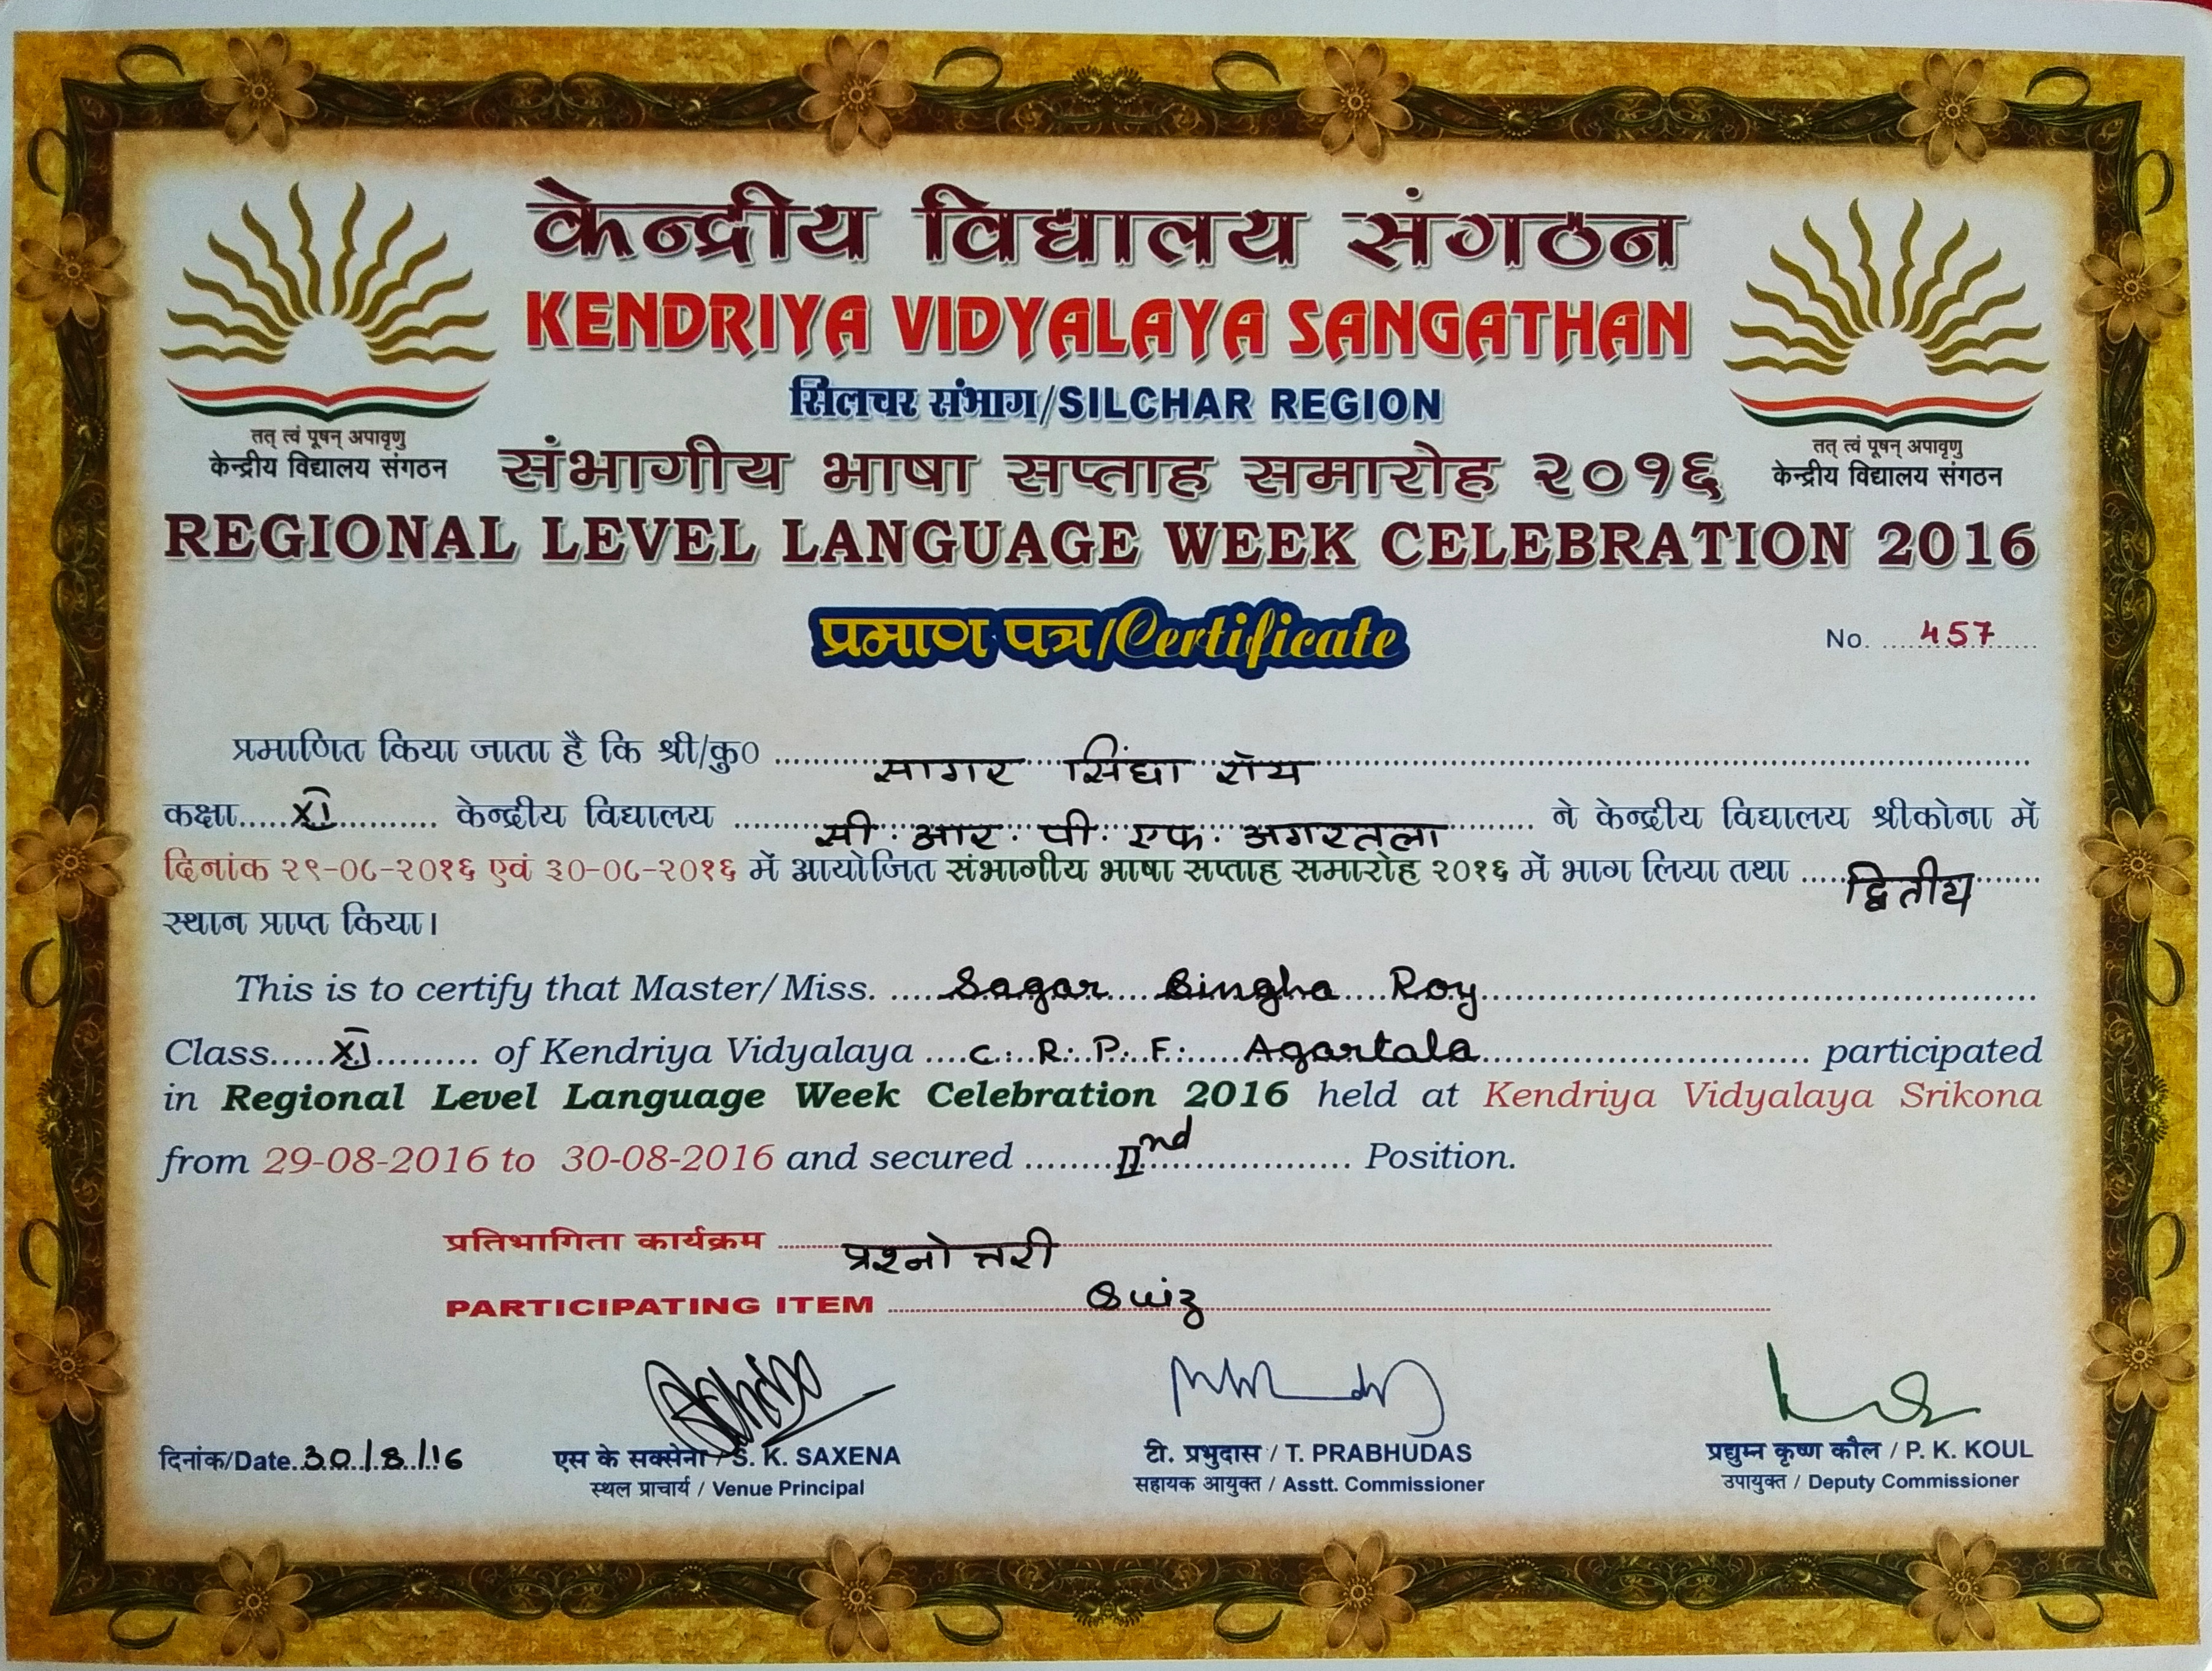 केन्द्रीय विद्यालय संगठन
KENDRIYA VIDYALAYA SANGATHAN
सिलचर संभाग/SILCHAR REGION
तत् त्वं पूषन् अपावृणु
केन्द्रीय विद्यालय संगठन
तत् त्वं पूषन् अपावृणु
केन्द्रीय विद्यालय संगठन
संभागीय भाषा सप्ताह समारोह २०१६
REGIONAL LEVEL LANGUAGE WEEK CELEBRATION 2016
प्रमाण पत्र/Certificate
No. 457
प्रमाणित किया जाता है कि श्री/कु० सागर सिंघा रॉय
कक्षा XI केन्द्रीय विद्यालय सी. आर. पी. एफ. अगरतला ने केन्द्रीय विद्यालय श्रीकोना में
दिनांक २९-०८-२०१६ एवं ३०-०८-२०१६ में आयोजित संभागीय भाषा सप्ताह समारोह २०१६ में भाग लिया तथा द्वितीय
स्थान प्राप्त किया।
This is to certify that Master/Miss. Sagar Singha Roy
Class XI of Kendriya Vidyalaya C. R. P. F. Agartala participated
in Regional Level Language Week Celebration 2016 held at Kendriya Vidyalaya Srikona
from 29-08-2016 to 30-08-2016 and secured IInd Position.
प्रतिभागिता कार्यक्रम प्रश्नोत्तरी
PARTICIPATING ITEM Quiz
दिनांक/Date 30/8/16
एस के सक्सेना / S. K. SAXENA
स्थल प्राचार्य / Venue Principal
टी. प्रभुदास / T. PRABHUDAS
सहायक आयुक्त / Asstt. Commissioner
प्रद्युम्न कृष्ण कौल / P. K. KOUL
उपायुक्त / Deputy Commissioner